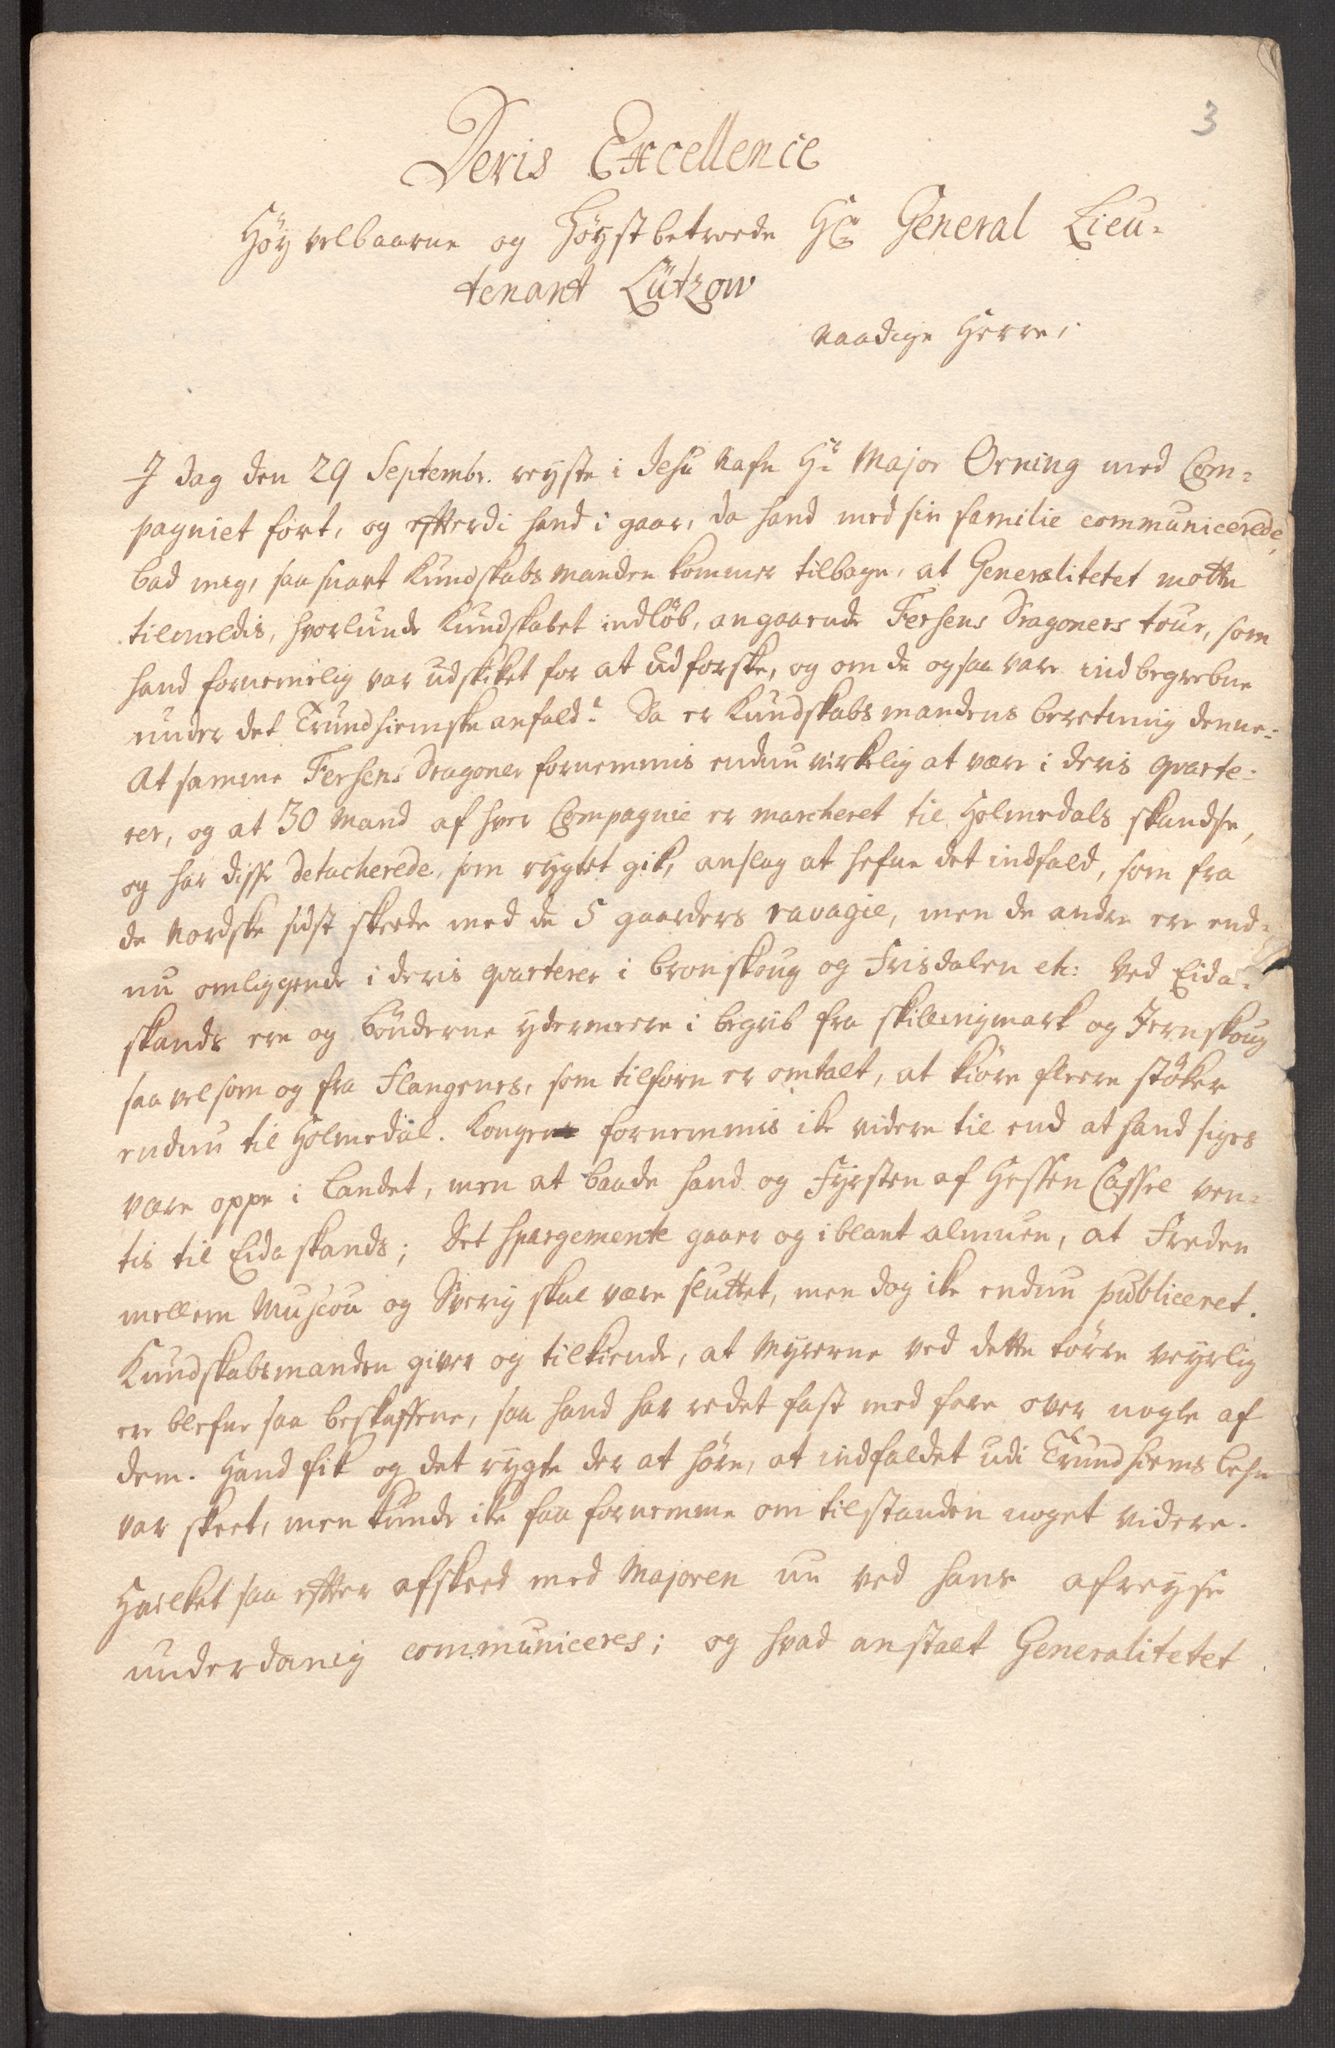 3
Deris Excellence
Høyvelbaarne og Høystbetroede Hr General Lieu-
tenant Lützow
Naadige Herre,
J dag den 29 Septembr. reyste i Jesu Nafn Hr Major Orning med Com-
pagniet fort, og efterdi hand i gaar, da hand med sin familie communicerede,
bad mig, saa snart Kundskabsmanden kommer tilbage, at Generalitetet motte
tilmeldis, hvorlunde Kundskabet indløb, angaaende Fersens Dragoners tour, som
hand fornemelig var udskiket for at udforske, og om de ogsaa vare indbegrebne
under det Trundhiemske anfald? Da er Kundskabsmandens beretning denne:
At samme Fersens Dragoner fornemmis endnu virkelig at være i deris qvarte-
rer, og at 30 Mand af hver Compagnie er marcheret til Holmedals skandse,
og har disse detacherede, som rygtet gik, anslag at hefne det indfald, som fra
de Nordske sidst skeede med de 5 gaarders ravagie, men de andre ere end-
nu omliggende i deris qvarterer i bronskoug og Frisdalen etc: Ved Eida-
skands ere og bønderne ydermeere i begreb fra skillingmark og Jernskoug
saavelsom og fra Flangenes, som tilforn er omtalt, at kiøre fleere støker
endnu til Holmedal. Kongen fornemmis ike videre til end at hand siges
være oppe i Landet, men at baade hand og Fyrsten af Hessen Cassel ven-
tis til Eidaskands; Det spargemente gaaer og iblant almuen, at Freden
mellem Muscou og Sverig skal være sluttet, men dog ike endnu publiceret.
Kundskabsmanden giver og tilkiende, at Myrerne ved dette tørre veyrlig
ere blefne saa beskaffene, saa hand har redet fast med fare over nogle af
dem. Hand fik og det rygte der at høre, at indfaldet udi Trundhiems Lehn
var skeet, men kunde ike faa fornemme om tilstanden noget videre.
Hvilket saa efter afskeed med Majoren nu ved hans afreyse
underdanig communiceres; og hvad anstalt Generalitetet